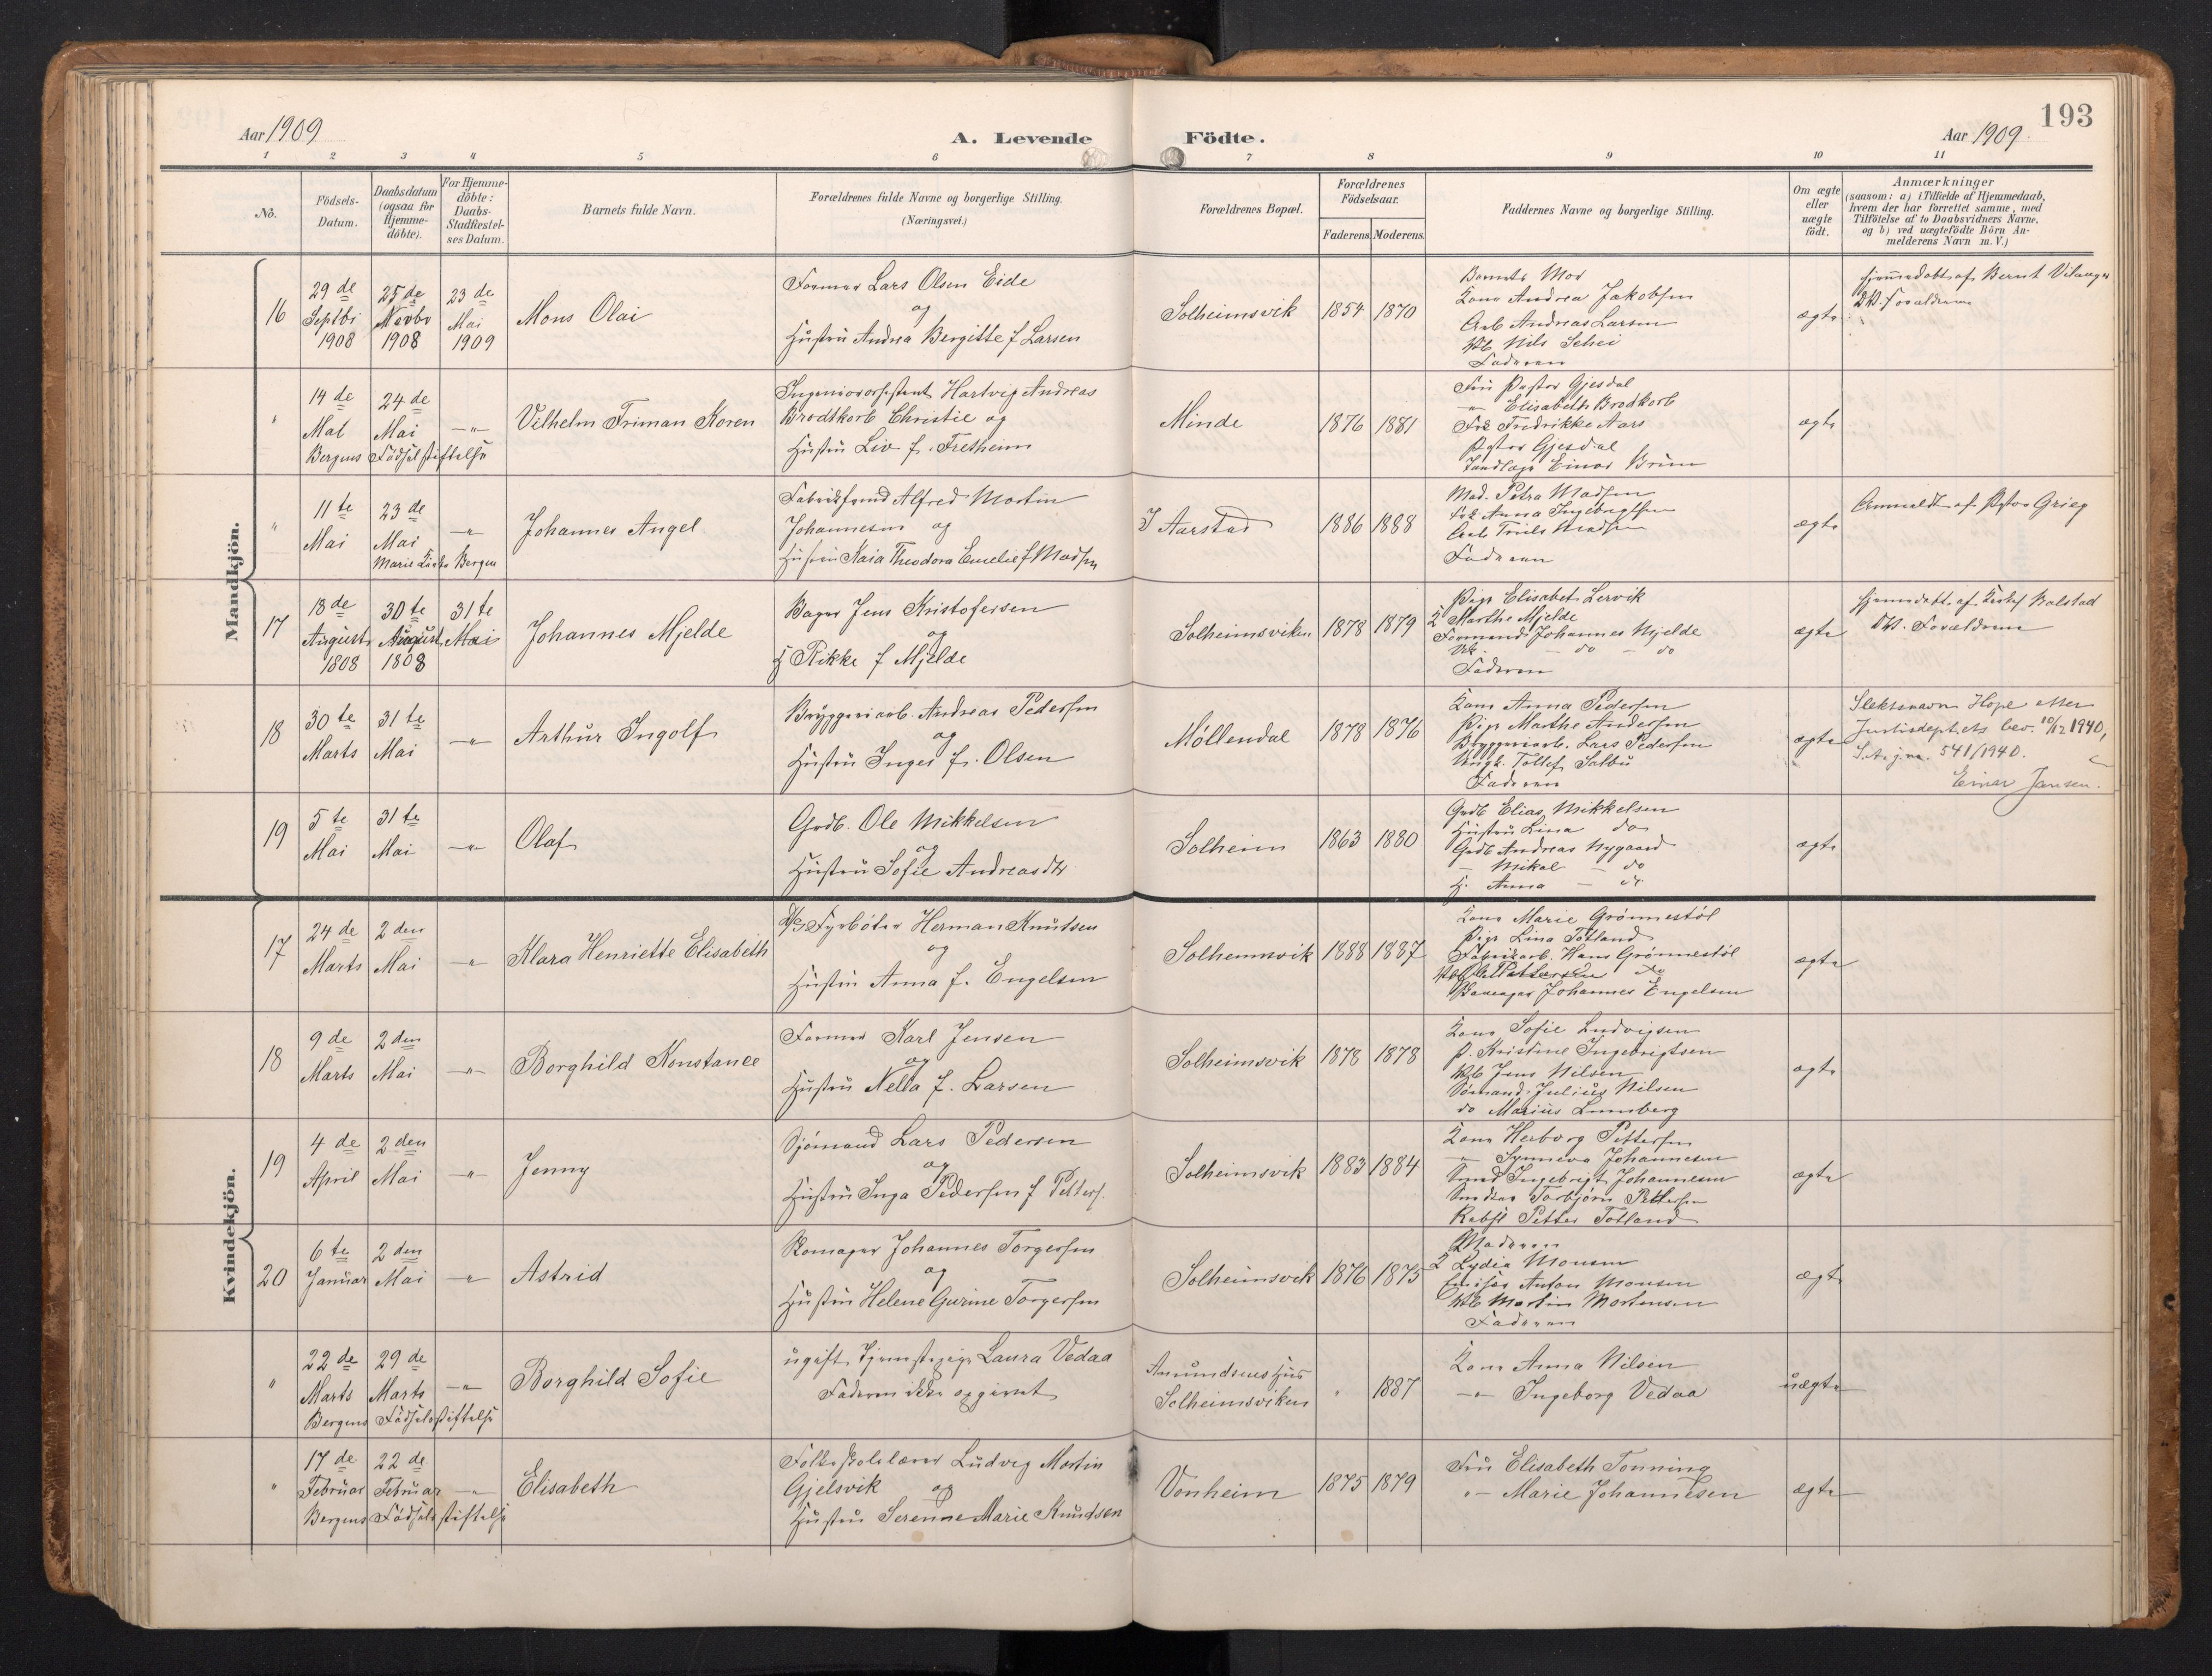 193
Aar 1909
A. Levende Födte.
Aar 1909.
1 2 3 4 5 6 7 8 9 10 11
No.
Födsels-
Datum.
Daabsdatum
(ogsaa for
Hjemme-
döbte).
For Hjemme-
döbte:
Daabs-
Stadfestel-
ses Datum.
Barnets fulde Navn.
Forældrenes fulde Navne og borgerlige Stilling.
(Næringsvei.)
Forældrenes Bopæl.
Forældrenes
Födselsaar.
Faderens. Moderens.
Faddernes Navne og borgerlige Stilling.
Om ægte
eller
uægte
födt.
Anmærkninger
(saasom: a) i Tilfælde af Hjemmedaab,
hvem der har forrettet samme, med
Tilföielse af to Daabsvidners Navne,
og b) ved uægtefödte Börn An-
melderens Navn m. V.)
Mandkjön.
16
29 de
Septbr
1908
25 de
Novbr
1908
23 de
Mai
1909
Mons Olai
Former Lars Olsen Eide
og
Hustru Andrea Bergitte f Larsen
Solheimsvik
1854 1870
Barnets Mor
Kone Andrea Jakobsen
Arb Andreas Larsen
Nils Schei
Faderen
ægte
Hjemmedøbt af Bernt
Forældrene
"
14 de
Mai
24 de
Mai
-"-
Bergens Födselsstiftelse
Vilhelm Friman Koren
Hartvig Andreas
Brodtkorb Christie og
Hustru Liv f. Fretheim
Minde
1876 1881
Fru Pastor Gjesdal
-"- Elisabeth Brodkorb
Frk Fredrikke Aars
Pastor Gjesdal
Tandlæge Einar Brun
ægte
"
11 te
Mai
23 de
Mai
-"-
Bergen
Johannes Angel
Alfred Martin
Johannesen og
Hustru Kaia Theodora Emelie f Madsen
Aarstad
1886 1888
Mad. Petra Madsen
Frk Anna Ingebrigtsen
Arb Truls Madsen
Faderen
ægte
Anmeldt af Pastor Grieg
17
18 de
August
1808
30 te
August
1808
31 te
Mai
Johannes Mjelde
Bager Jens Kristofersen
og
H Rikke f Mjelde
Solheimsviken
1878 1879
Pige Elisabet Lervik
K Marthe Mjelde
Formand Johannes Mjelde
- do - do
Faderen
ægte
Hjemmedøbt af Balstad
Forældrene
18
30 te
Marts
31 te
Mai
-"-
Arthur Ingolf
Bryggeriarb. Andreas Pedersen
og
Hustru Inger f. Olsen
Möllendal
1878 1876
Kone Anna Pedersen
Pige Marthe Andersen
Bryggeriarb. Lars Pedersen
Ungk. Tollef Salbu
Faderen
ægte
Slektsnavn Hope etter
Justisdept.ets bev. 10/12 1940,
541/1940.
Einar Jansen.
19
5 te
Mai
31 te
Mai
-"-
Olaf
Grdb. Ole Mikkelsen
og
Hustru Sofie Andreasdtr
Solheim
1863 1880
Grdb Elias Mikkelsen
Hustru Lina do
Grdb Andreas Nygaard
- Mikal - do
H. Anna - do
ægte
Kvindekjön.
17
24 de
Marts
2 den
Mai
-"-
Klara Henriette Elisabeth
Fyrböter Herman Knutsen
og
Hustru Anna f. Engelsen
Solheimsvik
1888 1887
Kone Marie Grönnestöl
Pige Lina Totland
Fabrikarb. Hans Grönnestöl
Johannes Engelsen
ægte
18
9 de
Marts
2 den
Mai
-"-
Borghild Konstance
Former Karl Jensen
og
Hustru Nella f. Larsen
Solheimsvik
1878 1878
Kone Sofie Ludvigsen
P. Kristine Ingebrigtsen
Jens Nilsen
Sömand Julius Nilsen
do Marius Lunberg
ægte
19
4 de
April
2 den
Mai
-"-
Jenny
Sjömand Lars Pedersen
og
Hustru Inga Pedersen f Petters.
Solheimsvik
1883 1884
Kone Herborg Pettersen
-"- Synneva Johannesen
Smed Ingebrigt Johannesen
Torbjörn Pettersen
Petter Totland
ægte
20
6 te
Januar
2 den
Mai
-"-
Astrid
Johannes Torgersen
og
Hustru Helene Gurine Torgersen
Solheimsvik
1876 1875
Moderen
K Lydia Monsen
Anton Monsen
Martin Mortensen
Faderen
ægte
"
22 de
Marts
29 de
Marts
-"-
Bergens Födselsstiftelse
Borghild Sofie
ugift Tjenestepige Laura Vedaa
Faderen ikke opgivet
Amundsens Hus
Solheimsviken
" 1887
Kone Anna Nilsen
-"- Ingeborg Vedaa
uægte
"
17 de
Februar
22 de
Februar
-"-
Bergens Födselsstiftelse
Elisabeth
Folkeskolelærer Ludvig Martin
Gjelsvik og
Hustru Serenne Marie Knudsen
Vonheim
1875 1879
Fru Elisabeth Tonning
"- Marie Johannesen
ægte